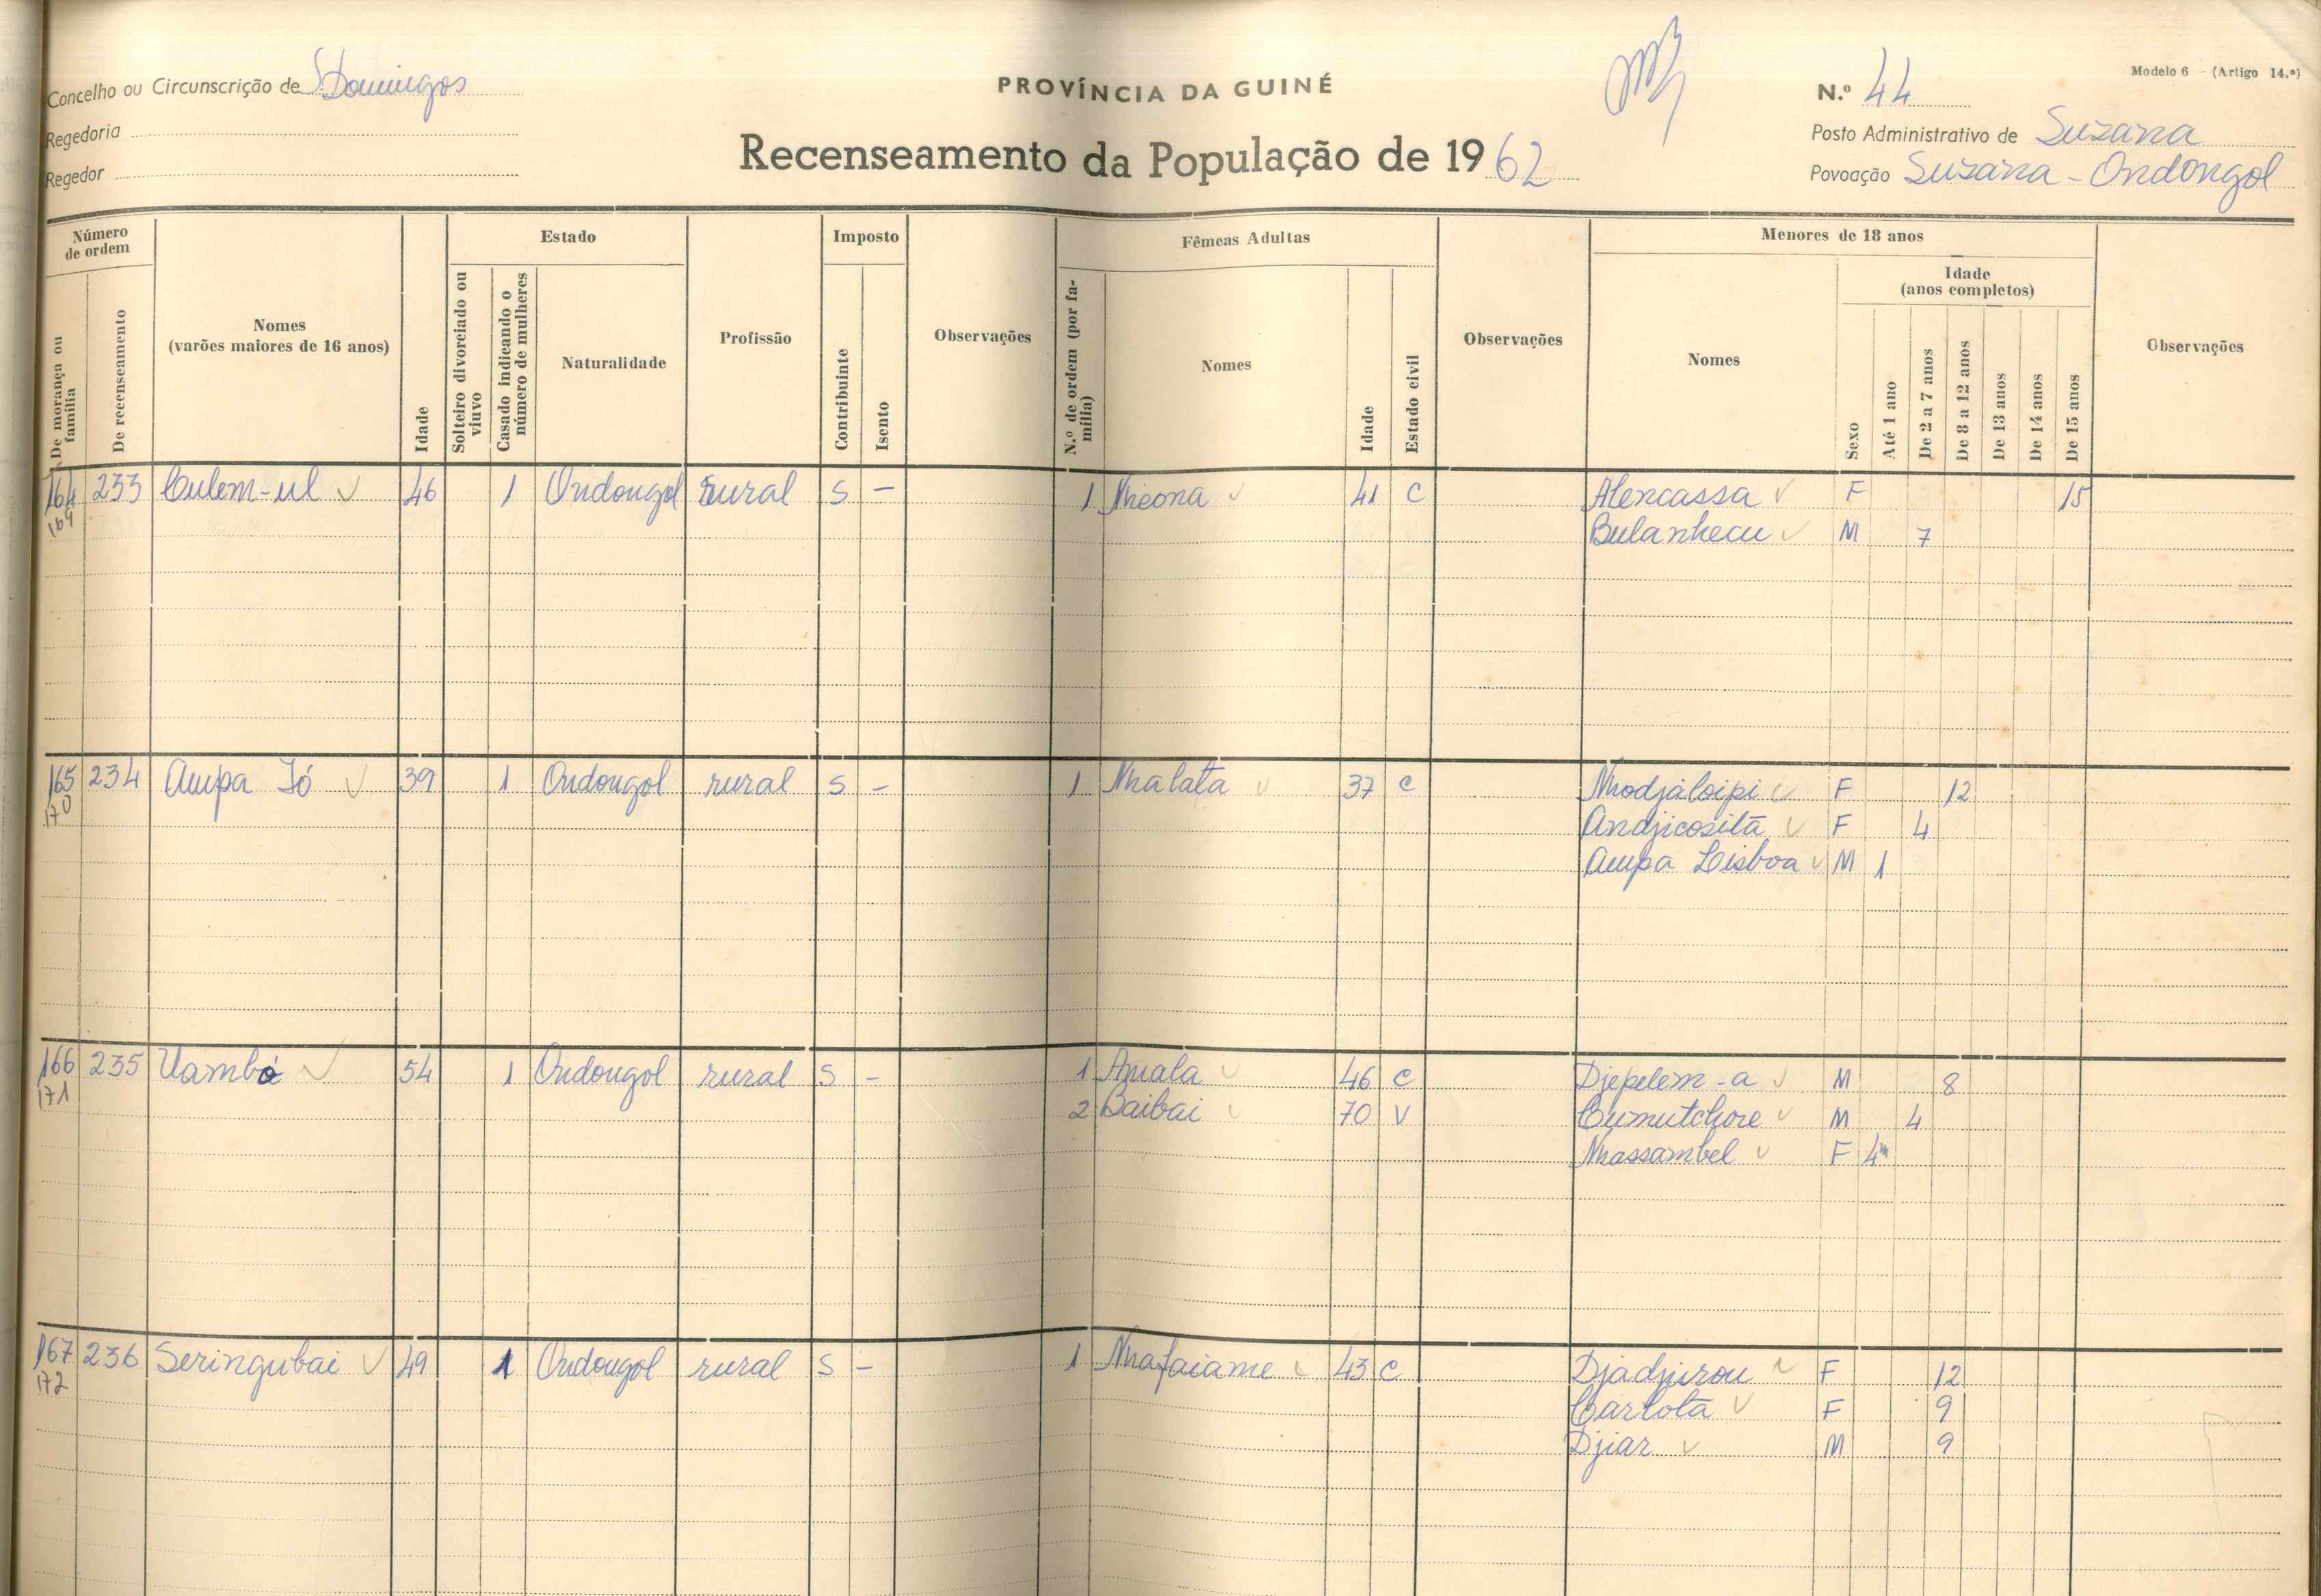 Concelho ou Circunscrição de S. Domingos
Regedoria
Regedor
PROVÍNCIA DA GUINÉ
Recenseamento da População de 1962
Modelo 6 - (Artigo 14.º)
N.º 44
Posto Administrativo de Suzana
Povoação Suzana - Ondongol
Número de ordem
De morança ou família
De recenseamento
Nomes (varões maiores de 16 anos)
Idade
Estado
Solteiro divorciado ou viuvo
Casado indicando o número de mulheres
Naturalidade
Profissão
Imposto
Contribuinte
Isento
Observações
Fêmeas Adultas
N.º de ordem (por família)
Nomes
Idade
Estado civil
Observações
Menores de 18 anos
Nomes
Sexo
Idade (anos completos)
Até 1 ano
De 2 a 7 anos
De 8 a 12 anos
De 13 anos
De 14 anos
De 15 anos
Observações
164 233 Culem-ul 46 1 Ondongol rural S - 1 Nheona 41 C Alencassa F 15
169 Bulanhecu M 7
165 234 Ampa Jó 39 1 Ondongol rural S - 1 Nhalata 37 C Nhodjaloipi F 12
170 Andjicositã F 4
Ampa Lisboa M 1
166 235 Uambó 54 1 Ondongol rural S - 1 Amala 46 C Djepelem-a M 8
171 2 Baibai 70 V Cumutchore M 4
Nhassambel F 4m
167 236 Seringubai 49 1 Ondongol rural S - 1 Nhafaiame 43 C Djadjurou F 12
172 Carlota F 9
Djiar M 9